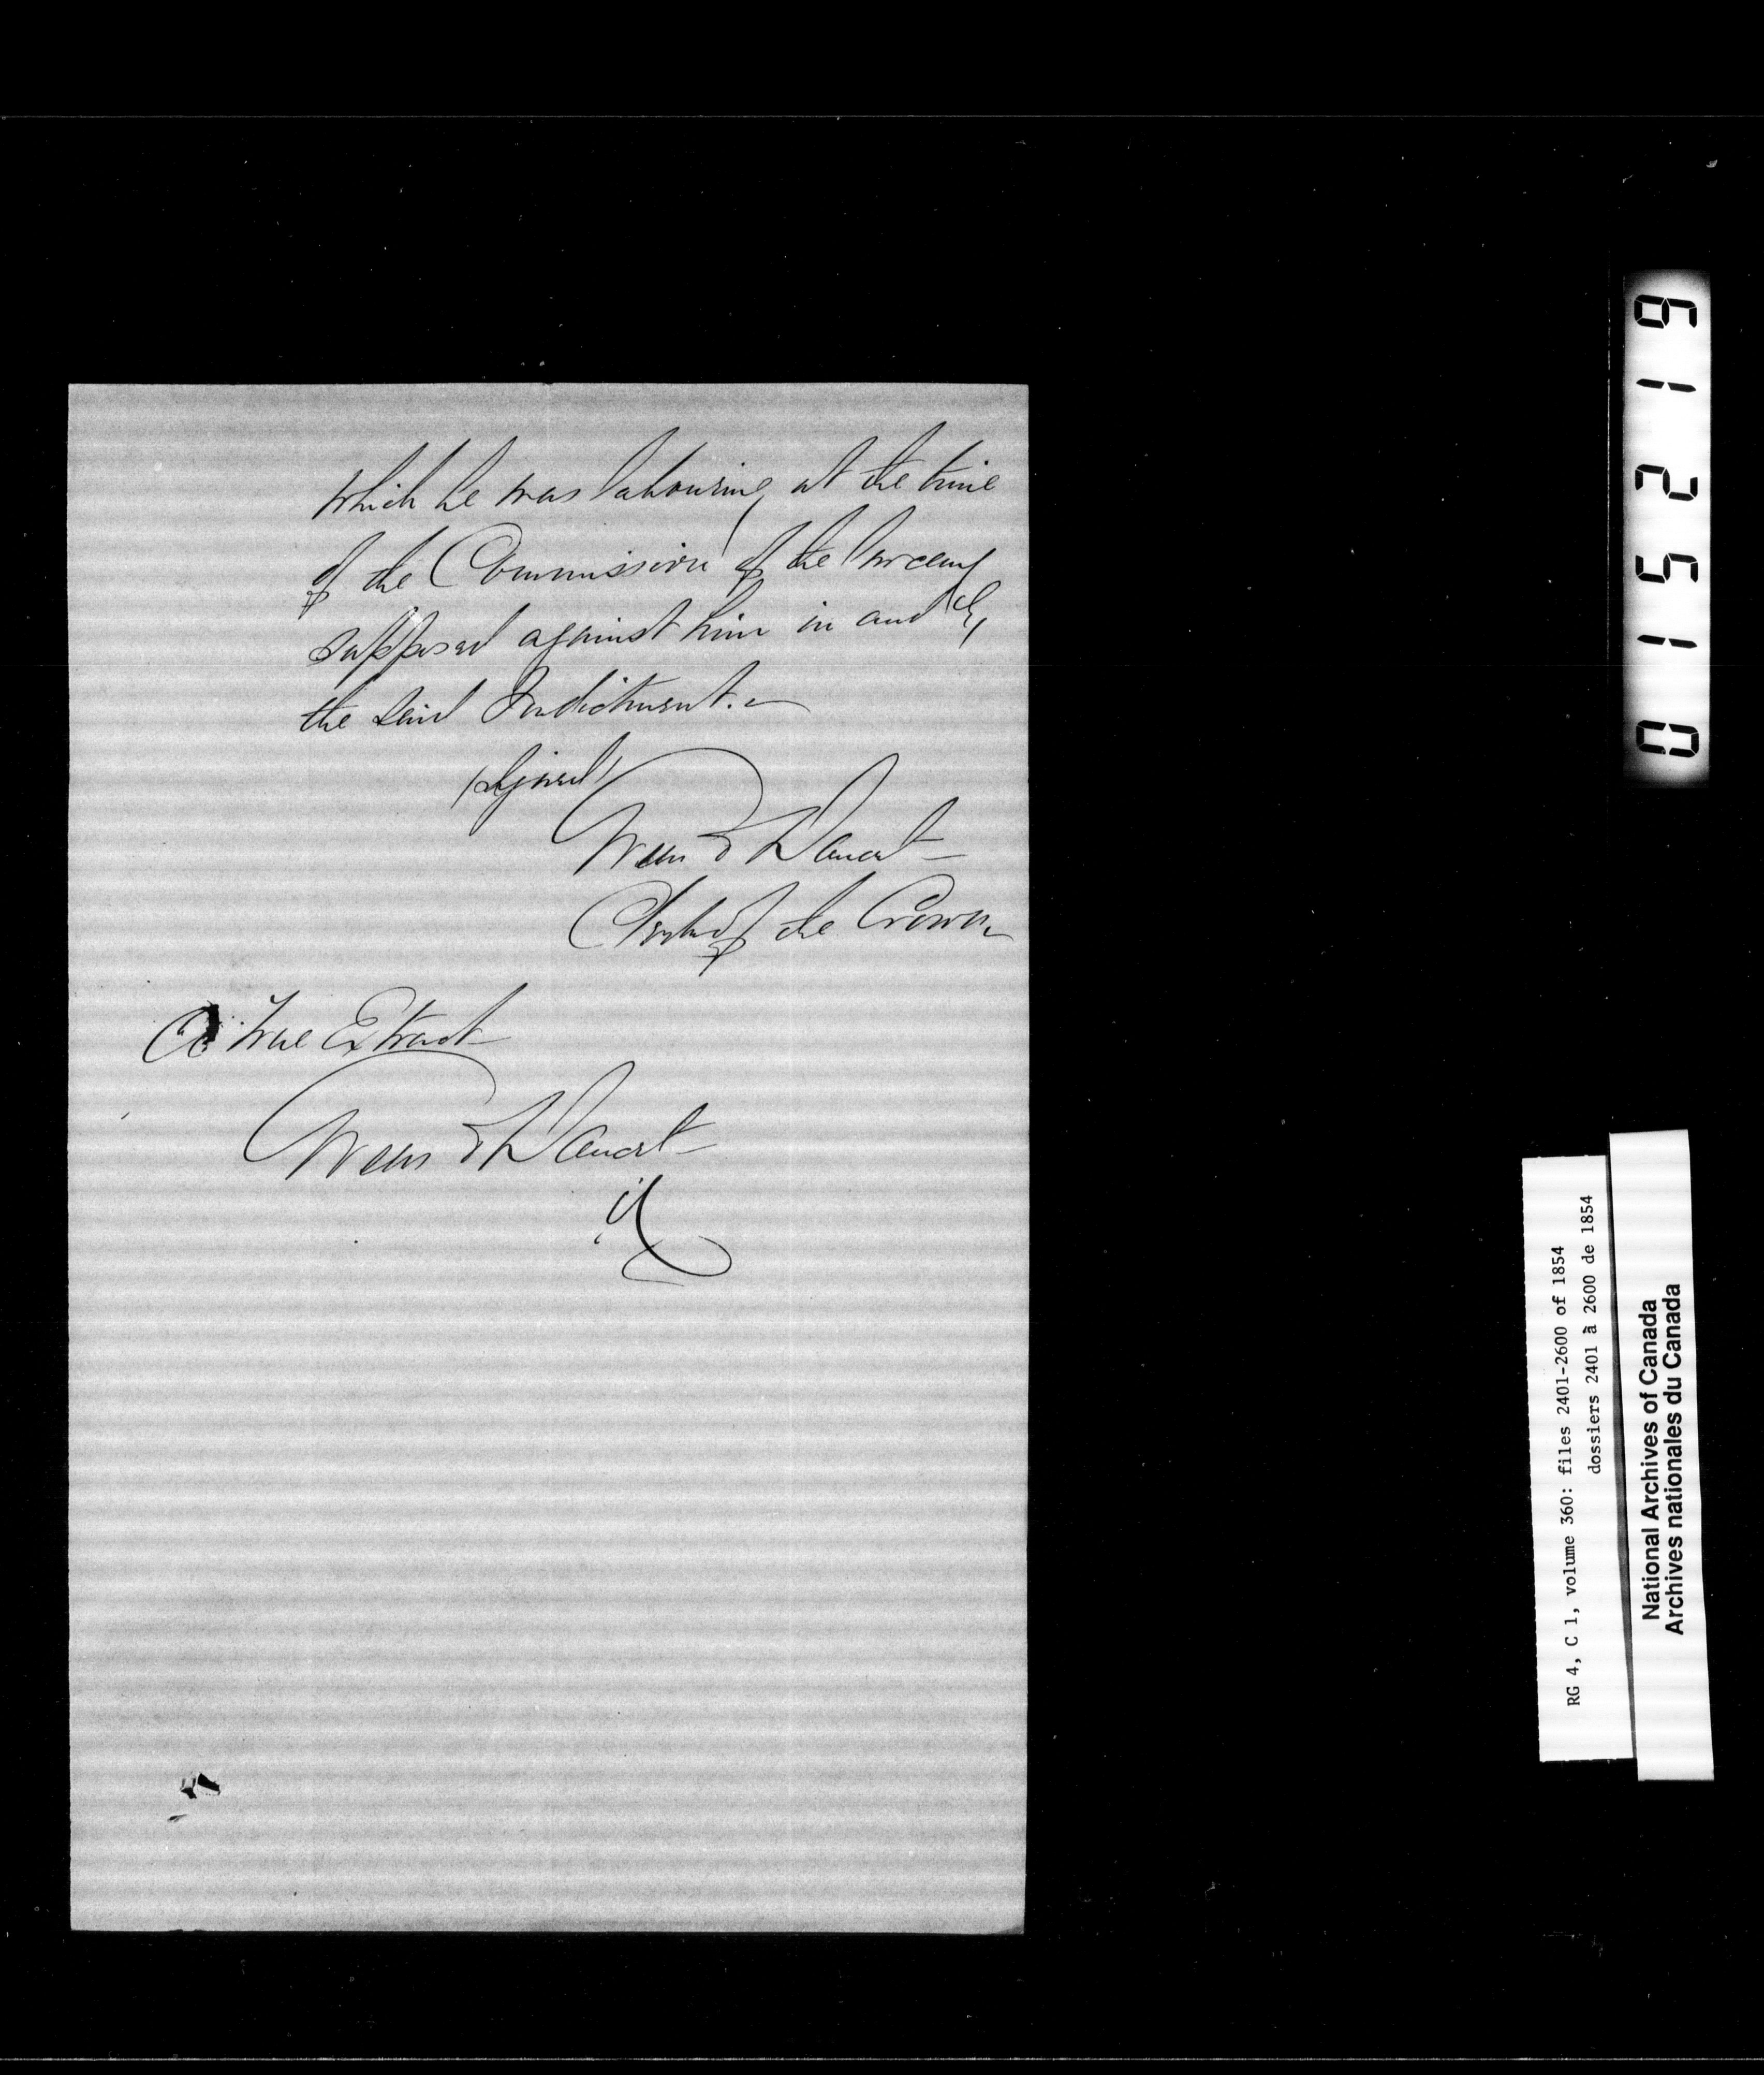 which he was labouring at the time
of the Commission of the larceny
supposed against him in and by
the said Indictment.
(signed)
Clerk of the Crown
A true Extract
015219
RG 4, C 1, volume 360: files 2401-2600 of 1854
dossiers 2401 à 2600 de 1854
National Archives of Canada
Archives nationales du Canada